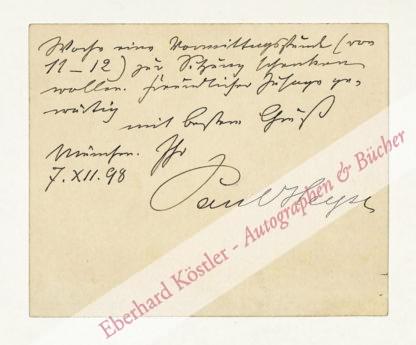 Woche eine Vormittagsstunde (von
11–12) zur Sitzung schenken
wollen. Freundlicher Zusage ge-
wärtig
mit bestem Gruß
Ihr
München.
7. XII. 98
Paul Heyse
Eberhard Köstler - Autographen & Bücher